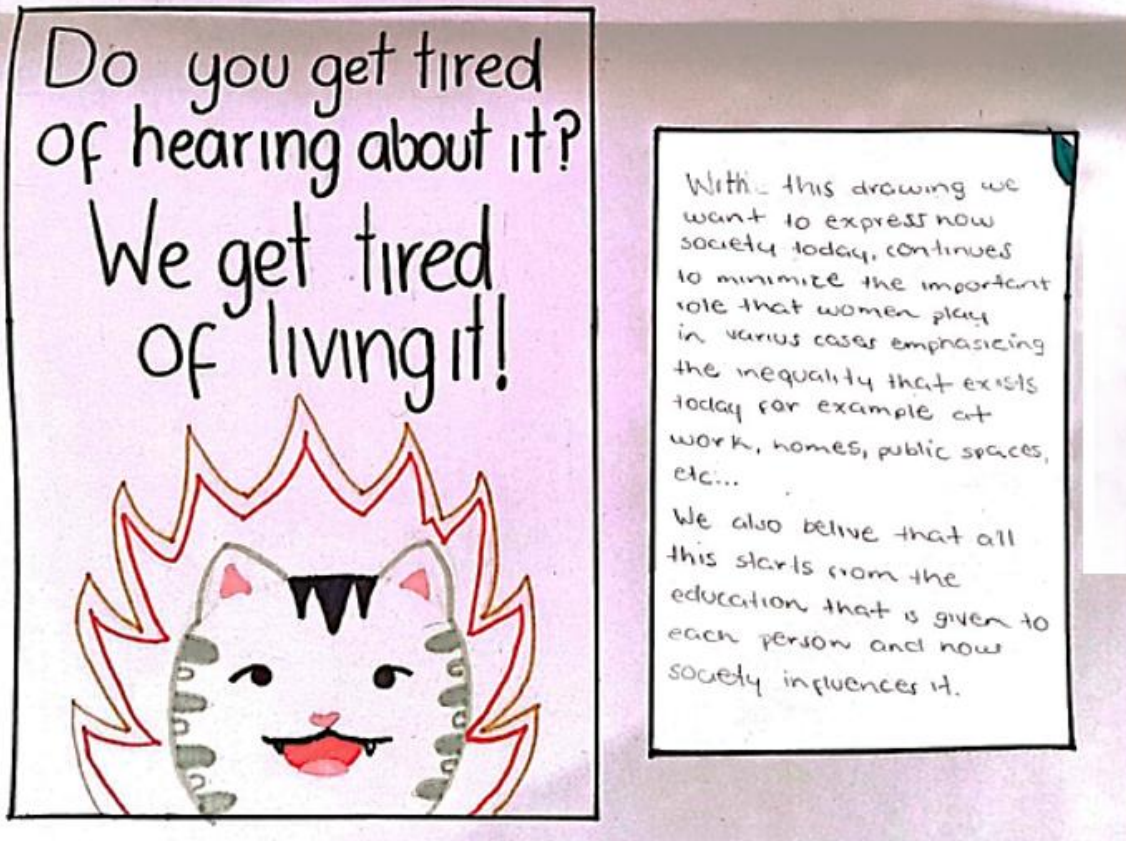 Do you get tired
of hearing about it?
We get tired
of living it!
With this drawing we
want to express how
society today, continues
to minimize the important
role that women play
in varius cases emphasizing
the inequality that exists
today for example at
work, homes, public spaces,
etc...
We also belive that all
this starts from the
education that is given to
each person and how
society influences it.